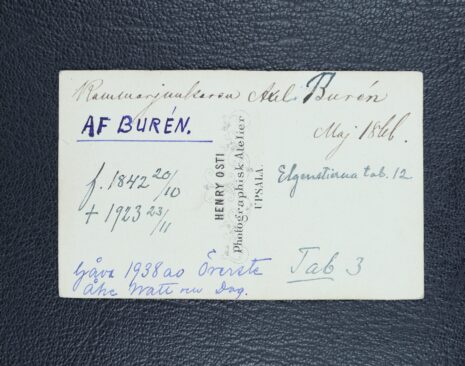 Kammarjunkaren Axel Burén
AF BURÉN.
Maj 1866.
f. 1842 20/10
† 1923 23/11
HENRY OSTI
Photographisk Atelier
UPSALA.
Elgenstierna tab. 12
Gåva 1938 av Överste
Åke
Tab 3